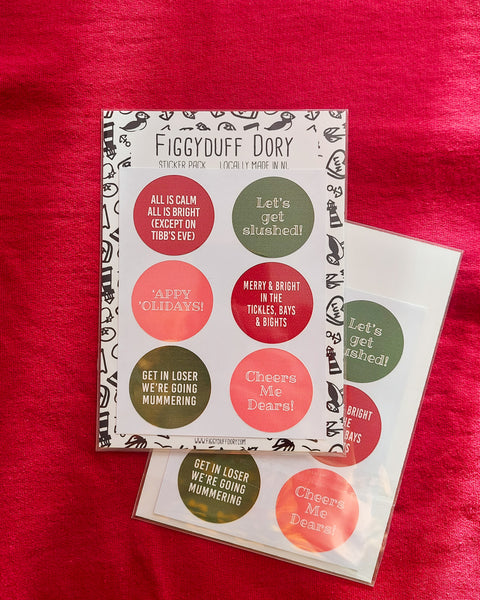 FIGGYDUFF DORY
STICKER PACK LOCALLY MADE IN NL
ALL IS CALM
ALL IS BRIGHT
(EXCEPT ON
TIBB'S EVE)
Let's
get
slushed!
'APPY
'OLIDAYS!
MERRY & BRIGHT
IN THE
TICKLES, BAYS
& BIGHTS
GET IN LOSER
WE'RE GOING
MUMMERING
Cheers
Me
Dears!
WWW.FIGGYDUFFDORY.COM
Let's
get
slushed!
BRIGHT
THE
BAYS
GET IN LOSER
WE'RE GOING
MUMMERING
Cheers
Me
Dears!